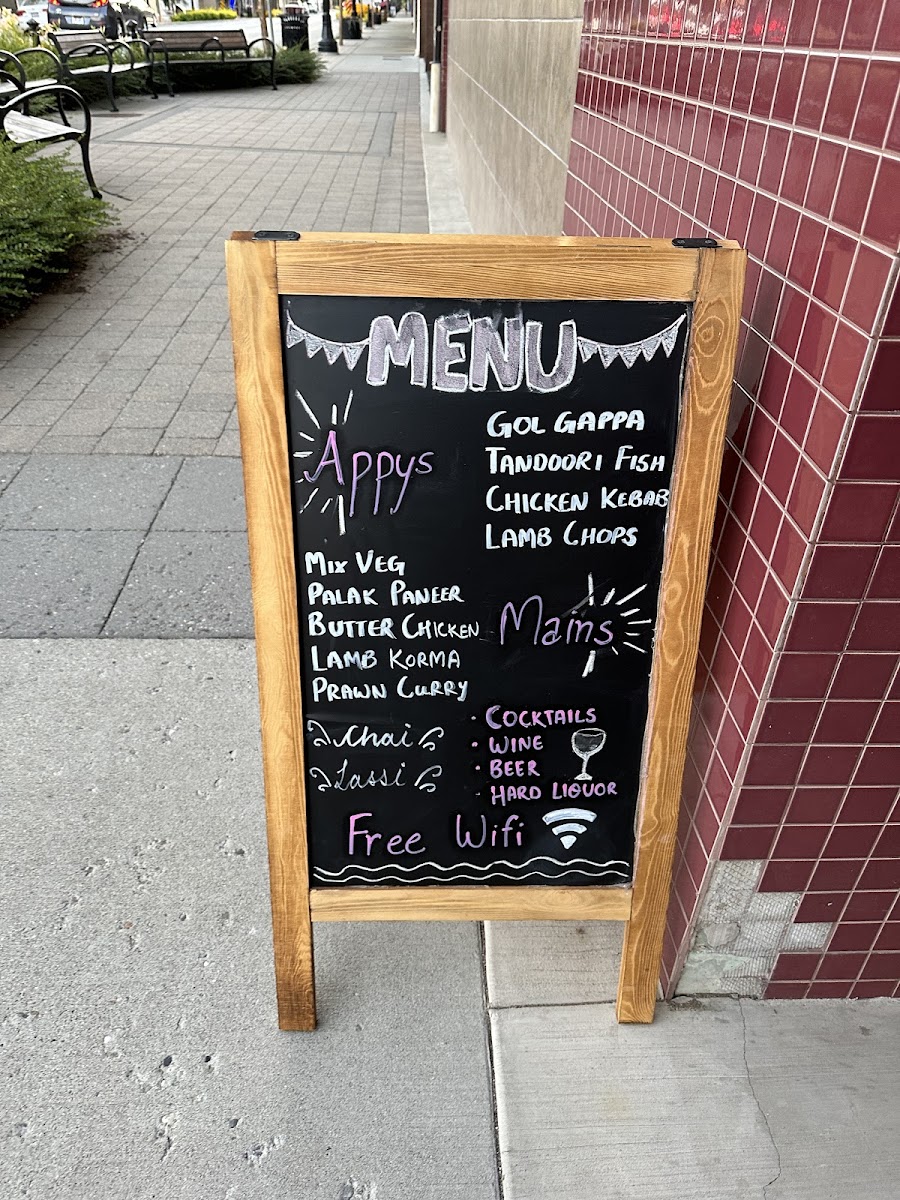 MENU
Appys
GOL GAPPA
TANDOORI FISH
CHICKEN KEBAB
LAMB CHOPS
MIX VEG
PALAK PANEER
BUTTER CHICKEN
LAMB KORMA
PRAWN CURRY
Mains
Chai
Lassi
· COCKTAILS
· WINE
· BEER
· HARD LIQUOR
Free Wifi